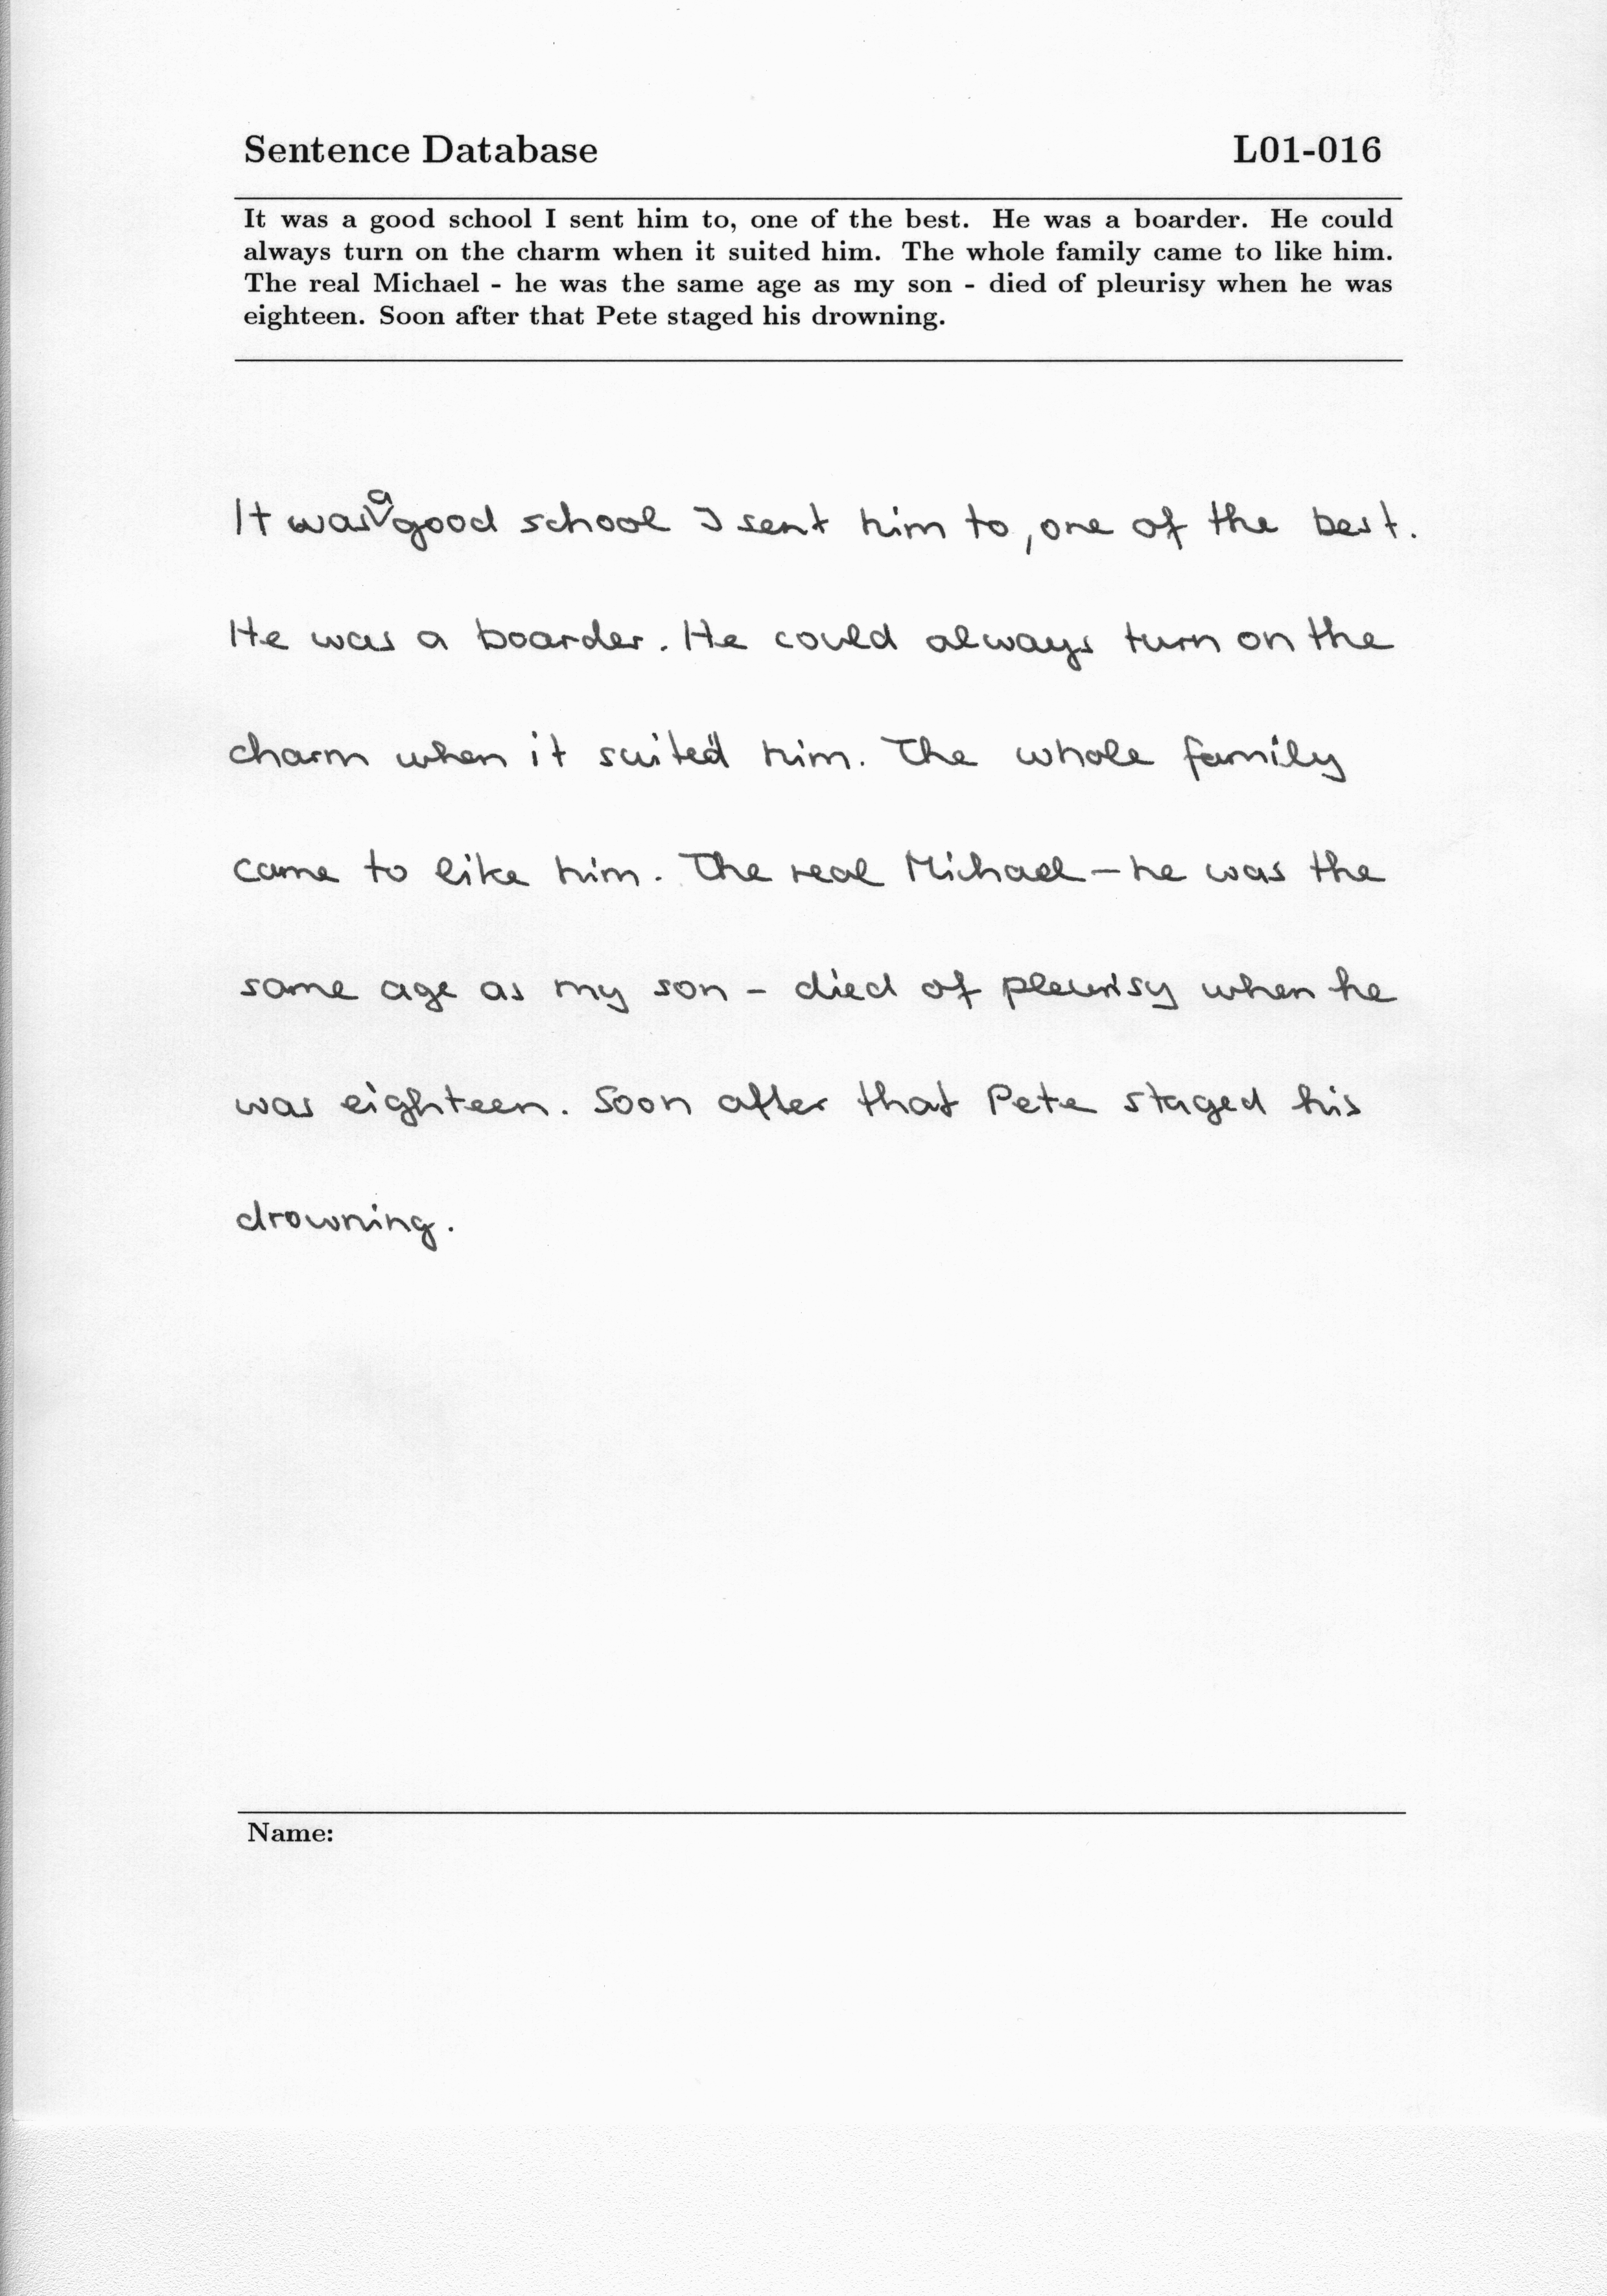 Sentence Database L01-016
It was a good school I sent him to, one of the best. He was a boarder. He could
always turn on the charm when it suited him. The whole family came to like him.
The real Michael - he was the same age as my son - died of pleurisy when he was
eighteen. Soon after that Pete staged his drowning.
It was a good school I sent him to, one of the best.
He was a boarder. He could always turn on the
charm when it suited him. The whole family
came to like him. The real Michael - he was the
same age as my son - died of pleurisy when he
was eighteen. Soon after that Pete staged his
drowning.
Name: